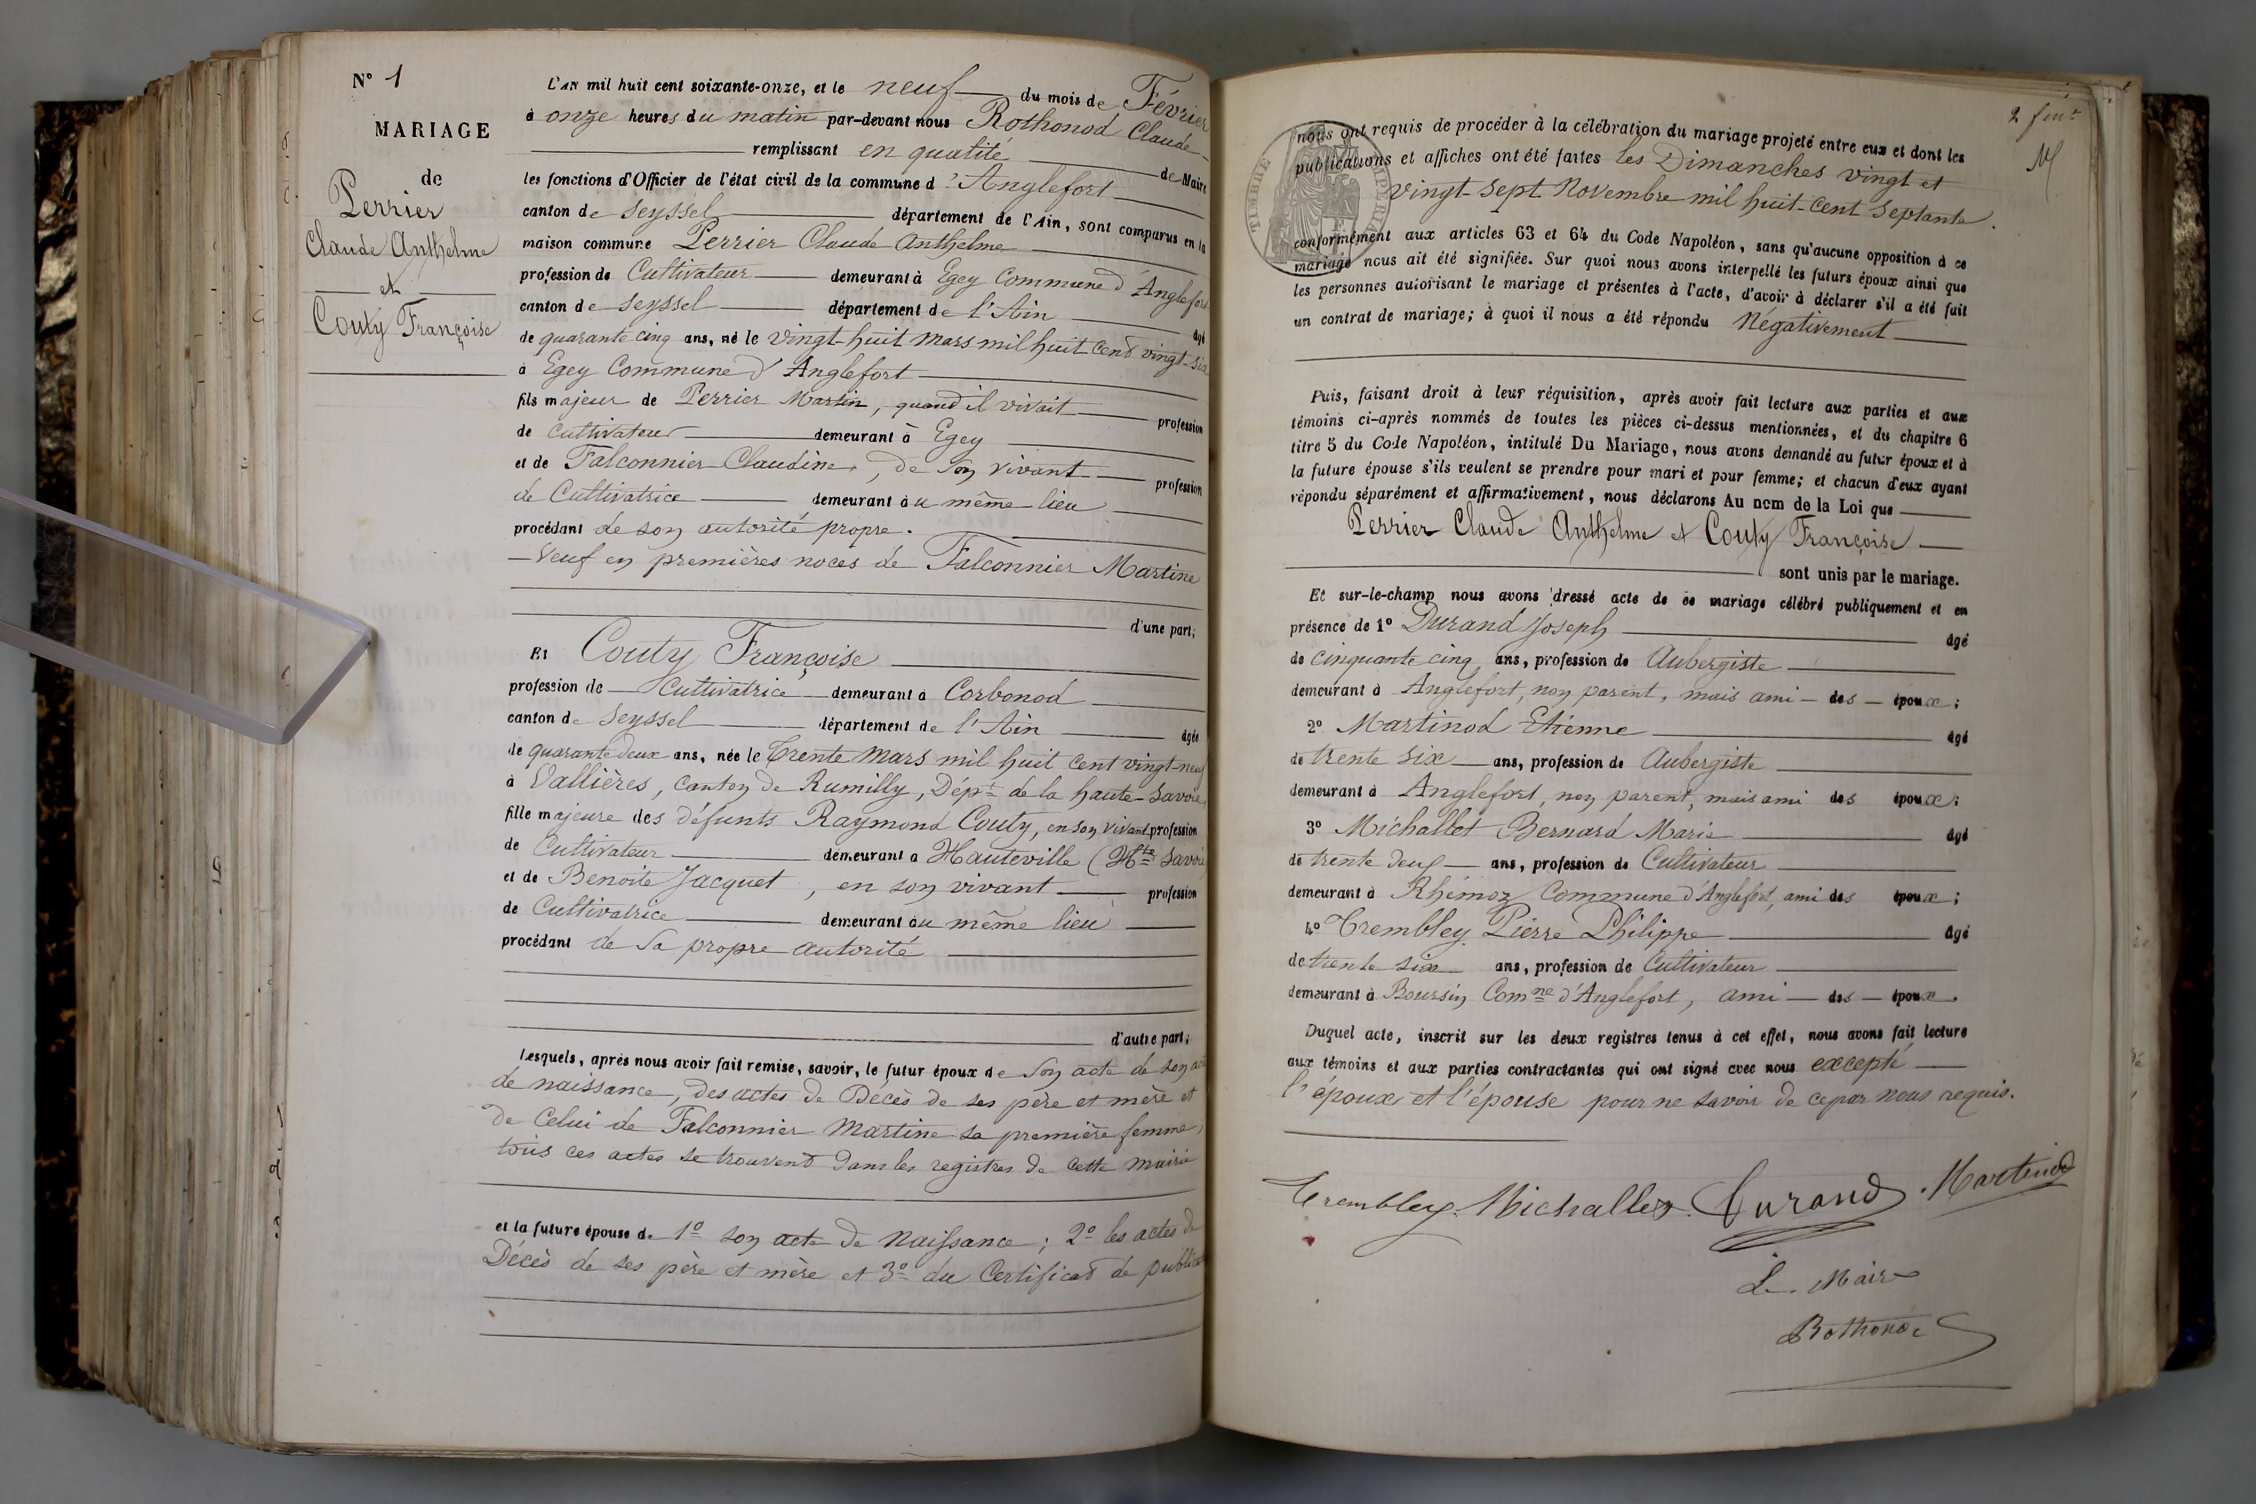 N° 1
MARIAGE
de
Perrier
Claude Anthelme
et
Couty Françoise
L'an mil huit cent soixante-onze, et le neuf du mois de Février
à onze heures du matin par-devant nous Rothonod Claude
remplissant en qualité de Maire
les fonctions d'Officier de l'état civil de la commune d'Anglefort
canton de Seyssel département de l'Ain, sont comparus en la
maison commune Perrier Claude Anthelme
profession de Cultivateur demeurant à Egey Commune d'Anglefort
canton de Seyssel département de l'Ain âgé
de quarante cinq ans, né le vingt-huit Mars mil huit cent vingt-six
à Egey Commune d'Anglefort
fils majeur de Perrier Martin, quand il vivait profession
de cultivateur demeurant à Egey
et de Falconnier Claudine, de son vivant profession
de Cultivatrice demeurant au même lieu
procédant de son autorité propre.
Veuf en premières noces de Falconnier Martine
d'une part;
Et Couty Françoise
profession de Cultivatrice demeurant à Corbonod
canton de Seyssel département de l'Ain âgée
de quarante deux ans, née le Trente Mars mil huit cent vingt-neuf
à Vallières, canton de Rumilly, Dépt de la haute-Savoie
fille majeure des défunts Raymond Couty, en son vivant profession
de Cultivateur demeurant à Hauteville (Hte Savoie
et de Benoite Jacquet, en son vivant profession
de Cultivatrice demeurant au même lieu
procédant de sa propre autorité
d'autre part;
Lesquels, après nous avoir fait remise, savoir, le futur époux de son acte de son acte
de naissance, des actes de Décès de ses père et mère et
de Celui de Falconnier Martine sa première femme,
tous ces actes se trouvent dans les registres de cette mairie
et la future épouse de 1° son acte de Naissance; 2° les actes de
Décès de ses père et mère et 3° du Certificat de publication
TIMBRE IMPERIAL
nous ont requis de procéder à la célébration du mariage projeté entre eux et dont les
publications et affiches ont été faites les Dimanches vingt et
vingt-sept Novembre mil huit-cent septante
conformément aux articles 63 et 64 du Code Napoléon, sans qu'aucune opposition à ce
mariage nous ait été signifiée. Sur quoi nous avons interpellé les futurs époux ainsi que
les personnes autorisant le mariage et présentes à l'acte, d'avoir à déclarer s'il a été fait
un contrat de mariage; à quoi il nous a été répondu Négativement
Puis, faisant droit à leur réquisition, après avoir fait lecture aux parties et aux
témoins ci-après nommés de toutes les pièces ci-dessus mentionnées, et du chapitre 6
titre 5 du Code Napoléon, intitulé Du Mariage, nous avons demandé au futur époux et à
la future épouse s'ils veulent se prendre pour mari et pour femme; et chacun d'eux ayant
répondu séparément et affirmativement, nous déclarons Au nom de la Loi que
Perrier Claude Anthelme et Couty Françoise
sont unis par le mariage.
Et sur-le-champ nous avons dressé acte de ce mariage célébré publiquement et en
présence de 1° Durand Joseph âgé
de cinquante cinq ans, profession de Aubergiste
demeurant à Anglefort, non parent, mais ami des époux;
2° Martinod Etienne âgé
de trente six ans, profession de Aubergiste
demeurant à Anglefort, non parent, mais ami des époux;
3° Michallet Bernard Marie âgé
de trente deux ans, profession de Cultivateur
demeurant à Rhémoz Commune d'Anglefort, ami des époux;
4° Trembley Pierre Philippe âgé
de trente six ans, profession de Cultivateur
demeurant à Boursin Comne d'Anglefort, ami des époux.
Duquel acte, inscrit sur les deux registres tenus à cet effet, nous avons fait lecture
aux témoins et aux parties contractantes qui ont signé avec nous excepté
l'époux et l'épouse pour ne savoir de ce par nous requis.
Trembley. Michallet. Durand. Martinod
Le Maire
Rothonod